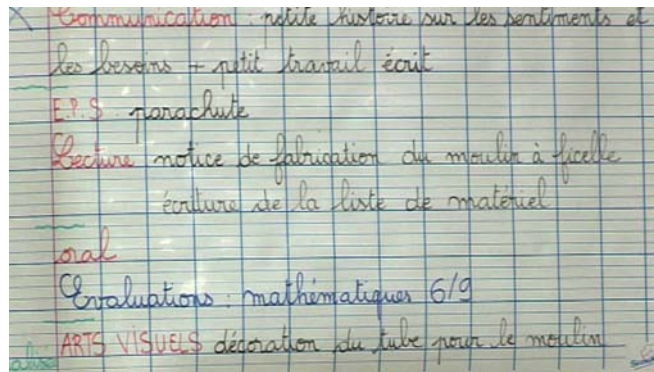 Communication : petite histoire sur les sentiments et
les besoins + petit travail écrit
E.P.S. parachute
Lecture notice de fabrication du moulin à ficelle
écriture de la liste de matériel
oral
Evaluations : mathématiques 6/9
ARTS VISUELS décoration du tube pour le moulin